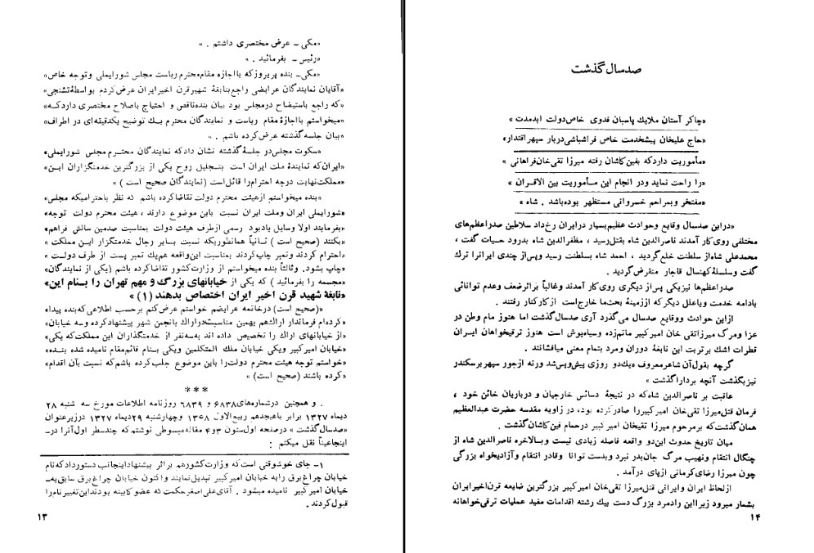 «مکی- عرض مختصری داشتم . »
«رئیس- بفرمائید . »
«مکی- بنده پریروز که با اجازه مقام محترم ریاست مجلس شورایملی و توجه خاص»
«آقایان نمایندگان عرایضی راجع بنابغهٔ شهیر قرن اخیر ایران عرض کردم بواسطهٔ تشنجی»
«که راجع باستیضاح در مجلس بود بیان بنده ناقص و احتیاج باصلاح مختصری دارد که»
«میخواستم با اجازهٔ مقام ریاست و نمایندگان محترم بیك توضیح یکدقیقه‌ای در اطراف»
«بیان جلسه گذشته عرض کرده باشم . »
«سکوت مجلس در جلسهٔ گذشته نشان داد که نمایندگان محترم مجلس شورایملی»
«ایران که نمایندهٔ ملت ایران است بتجلیل روح یکی از بزرگترین خدمتگزاران این»
«مملکت نهایت درجه احترام را قائل است ( نمایندگان صحیح است ) »
«بنده میخواستم از هیئت محترم دولت تقاضا کرده باشم که نظر باحترامیکه مجلس»
«شورایملی ایران و ملت ایران نسبت باین موضوع دارند ، هیئت محترم دولت توجه»
«بفرمایند اولا وسایل یادبود رسمی از طرف هیئت دولت بمناسبت صدمین سالش فراهم»
«بکنند (صحیح است ) ثانیاً همانطوریکه نسبت بسایر رجال خدمتگزار این مملکت »
«احترام کردند و تمبر چاپ کردند بمناسبت این واقعه هم یك تمبر پست از طرف دولت»
«چاپ بشود. وثالثاً بنده میخواستم از وزارت کشور تقاضا کرده باشم (یکی از نمایندگان)»
«مجسمه را بفرمائید ) که یکی از خیابانهای بزرگ و مهم تهران را بنام این»
«نابغهٔ شهید قرن اخیر ایران اختصاص بدهند (۱) »
«(صحیح است) در خاتمه عرایضم خواستم عرض کنم برحسب اطلاعی که بنده پیدا»
«کرده‌ام فرماندار اراک هم بهمین مناسبت در اراك بانجمن شهر پیشنهاد کرده و سه خیابان»
«از خیابانهای اراك را تخصیص داده اند بسه نفر از خدمتگذاران این مملکت که یکی»
«خیابان امیرکبیر ویکی خیابان ملك المتکلمین ویکی بنام قائم مقام نامیده شده بنده»
«خواستم توجه هیئت محترم دولت را باین موضوع جلب کرده باشم که نسبت بآن اقدام»
«کرده باشند (صحیح است) »
* * *
. و همچنین در شماره‌های ۶۸۳۸ و ۶۸۳۹ روزنامه اطلاعات مورخ سه شنبه ۲۸
دیماه ۱۳۲۷ برابر با هیجدهم ربیع‌الاول ۱۳۶۸ و چهارشنبه ۲۹ دیماه ۱۳۲۷ در زیر عنوان
«صدسال گذشت » در صفحه اول ستون ۳ و ۴ مقاله مبسوطی نوشتم که چند سطر اول آنرا در
اینجا عیناً نقل میکنم :
۱- جای خوشوقتی است که وزارت کشور هم براثر پیشنهاد اینجانب دستور داد که نام
خیابان چراغ برق را به خیابان امیرکبیر تبدیل نمایند و اکنون خیابان چراغ برق سابق به
خیابان امیرکبیر نامیده میشود . آقای علی اصغر حکمت که عضو کابینه بودند این تغییر نام را
قبول کردند .
۱۳
صدسال گذشت
«چاکر آستان ملایك پاسبان فدوی خاص دولت ابدمدت »
«حاج علیخان پیشخدمت خاص فراشباشی دربار سپهر اقتدار»
«مأموریت دارد که بفین کاشان رفته میرزا تقی‌خان فراهانی »
«را راحت نماید و در انجام این مأموریت بین الاقران »
«مفتخر و بمراحم خسروانی مستظهر بوده باشد . شاه »
در این صد سال وقایع و حوادث عظیم بسیار در ایران رخ داد سلاطین صدراعظم‌های
مختلفی روی کار آمدند ناصرالدین شاه بقتل رسید ، مظفرالدین شاه بدرود حیات گفت ،
محمدعلی شاه از سلطنت خلع گردید ، احمد شاه بسلطنت رسید و پس از چندی ایران را ترك
گفت وسلسلهٔ کهنسال قاجار منقرض گردید .
صدراعظم‌ها نیز یکی پس از دیگری روی کار آمدند وغالباً براثر ضعف و عدم توانائی
بادامه خدمت و یا علل دیگر که از زمینهٔ بحث ما خارج است از کار کنار رفتند .
از این حوادث و وقایع صد سال می‌گذرد آری صدسال گذشت اما هنوز مام وطن در
عزا و مرگ میرزا تقی خان امیرکبیر ماتم‌زده و سیاهپوش است هنوز ترقیخواهان ایران
قطرات اشك بر تربت این نابغهٔ دوران و مرد بتمام معنی میافشانند .
گرچه بقول آن شاعر معروف دیك دو روزی پیش و پس شد ورنه از جور سپهر بر سکندر
نیز بگذشت آنچه بر دارا گذشت»
عاقبت بر ناصرالدین شاه که در نتیجهٔ دسائس خارجیان و درباریان خائن خود ،
فرمان قتل میرزا تقی خان امیرکبیر را صادر کرده بود، در زاویه مقدسه حضرت عبدالعظیم
همان گذشت که بر مرحوم میرزا تقیخان امیر کبیر در حمام فین کاشان گذشت .
میان تاریخ حدوث این دو واقعه فاصله زیادی نیست و بالاخره ناصرالدین شاه از
چنگال انتقام و نهیب مرگ جان بدر نبرد و بدست توانا وقادر انتقام و آزادیخواه بزرگی
چون میرزا رضای کرمانی از پای درآمد .
از لحاظ ایران و ایرانی قتل میرزا تقی خان امیر کبیر بزرگترین ضایعه قرن اخیر ایران
بشمار میرود زیرا این رادمرد بزرگ دست بیك رشته اقدامات مفید عملیات ترقی‌خواهانه
۱۴